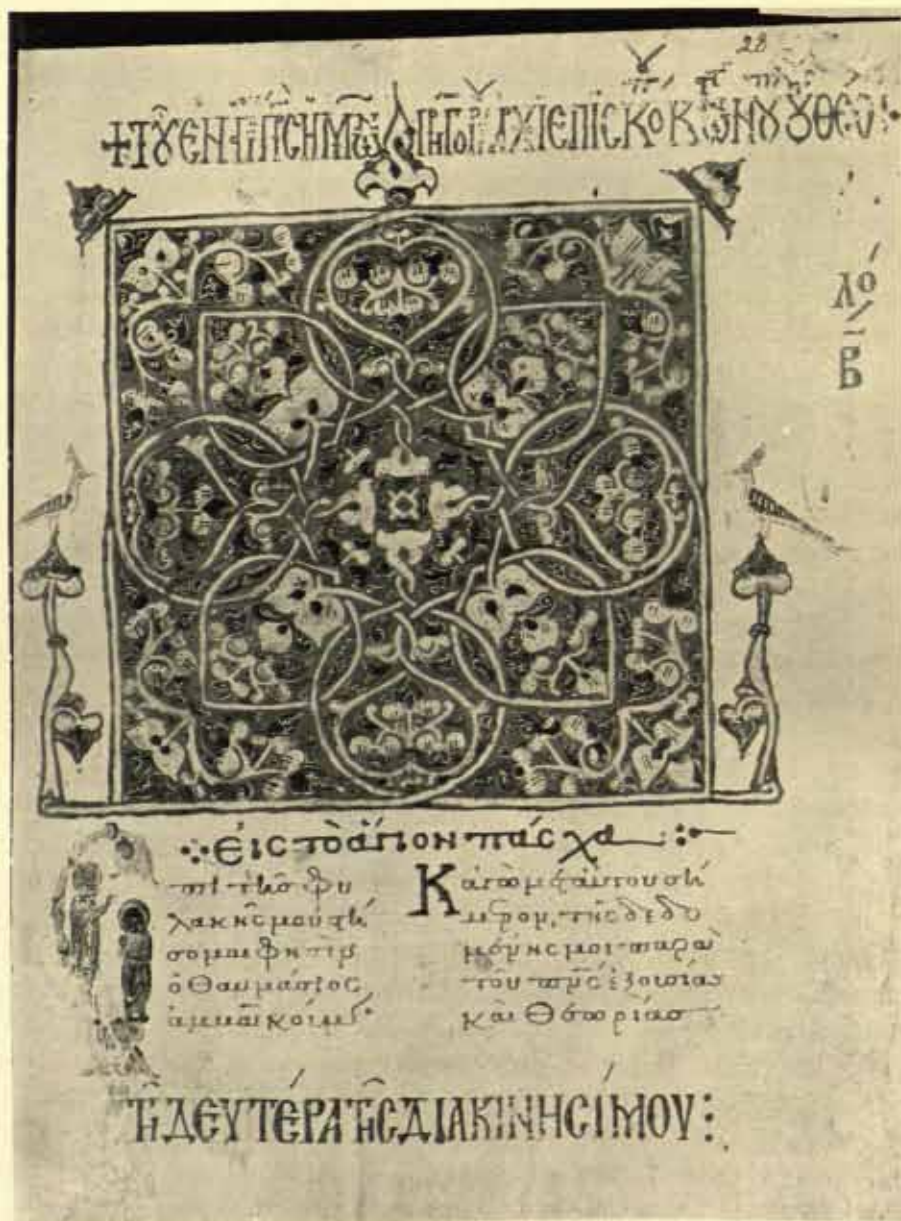 28
+ΤΟΥ ΕΝ ΑΓΙ ΠΣ ΗΜΩΝ ΓΡΗΓΟΡΙ ΑΡΧΙΕΠΙΣΚΟ ΚΩΝ ΤΟΥ ΘΕΟ
λό
Β̄
Εἰς τὸ ἅγιον πάσχα
πὶ τῆς φυ
λακῆς μου στή
σομαι φησὶν
ὁ θαυμάσιος
ἀμβακούμ·
Κἀγὼ μετ αὐτοῦ σή
μερον, τῆς δεδο
μένης μοι παρὰ
τοῦ π̅ν̅ς̅ ἐξουσίας
καὶ θεωρίας
ΤΗ ΔΕΥΤΕΡΑ ΤΗΣ ΔΙΑΚΙΝΗΣΙΜΟΥ: